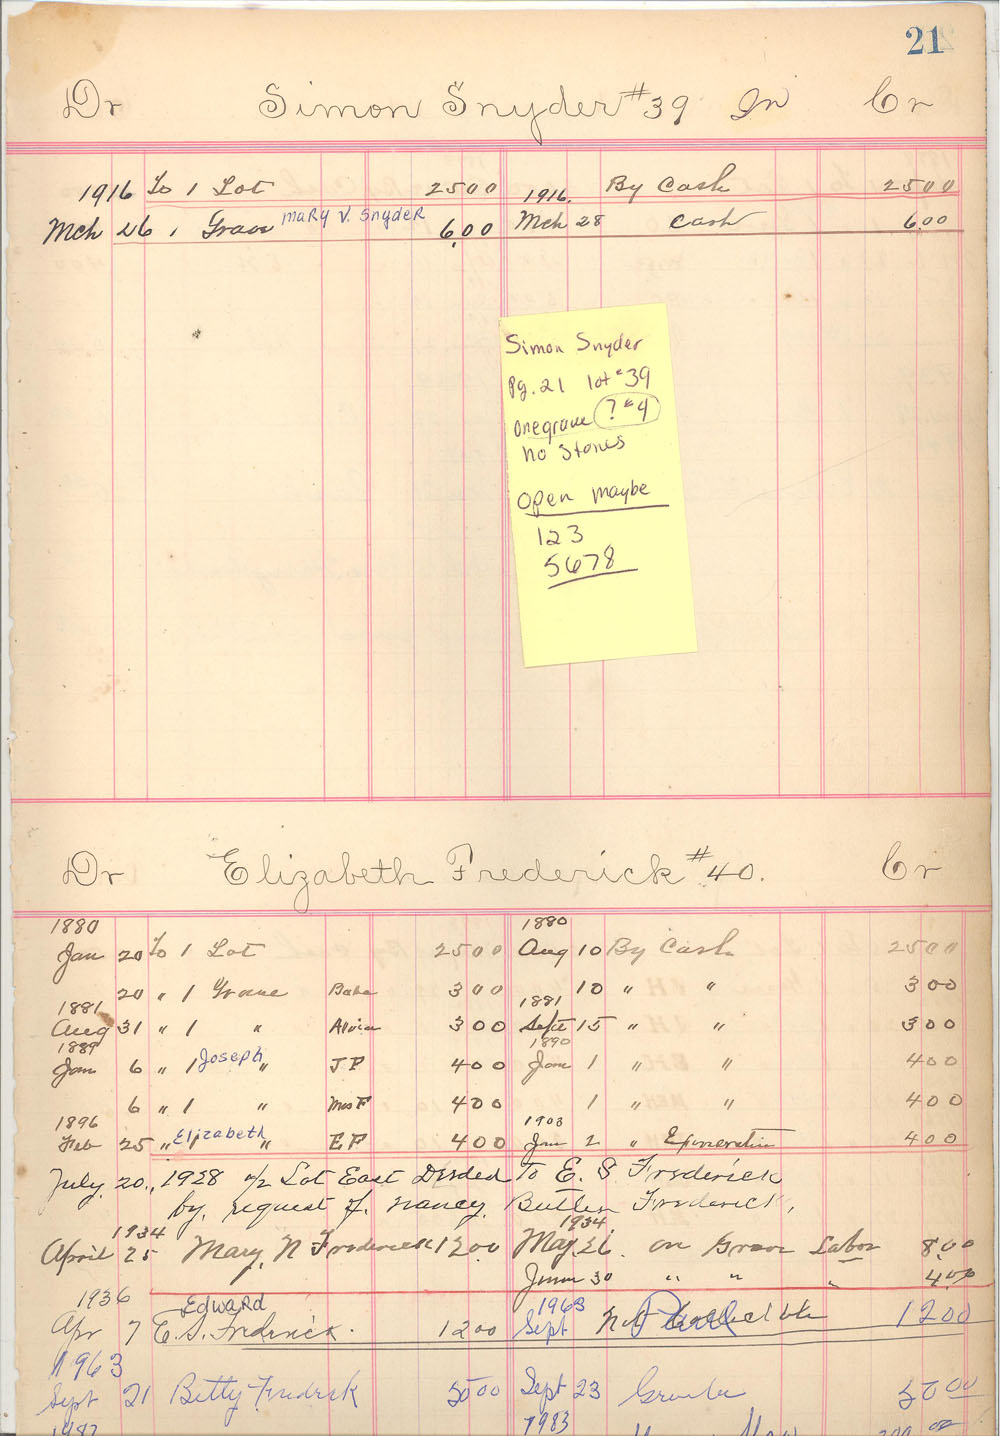 21
Dr Simon Snyder #39 Jr Cr
1916 To 1 Lot 25 00 1916. By Cash 25 00
Mch 26 1 Grave Mary V. Snyder 6.00 Mch 28 Cash 6.00
Simon Snyder
Pg. 21 lot #39
one grave ? #4
no stones
Open maybe
1 2 3
5 6 7 8
Dr Elizabeth Frederick #40. Cr
1880 1880
Jan 20 To 1 Lot 25 00 Aug 10 By Cash 25 00
20 " 1 Grave Babe 3 00 10 " " 3 00
1881 1881
Aug 31 " 1 " 3 00 Sept 15 " " 3 00
1889 1890
Jan 6 " 1 Joseph " J F 4 00 Jan 1 " " 4 00
6 " 1 " Mrs F 4 00 1 " " 4 00
1896 1903
Feb 25 " Elizabeth " E F 4 00 Jan 2 " 4 00
July 20., 1928 1/2 Lot East Deeded To E. S Frederick
by, request of. Nancy. Butler Frederick,
1934 1934
April 25 Mary, N Frederick 12.00 May. 26. on Grave Labor 8.00
June 30 " " " 4.00
1936 Edward 1963
Apr 7 E. S. Frederick. 12 00 Sept Not 12 00
1963
Sept 21 Betty Fredrick 50 00 Sept 23 50 00
1983